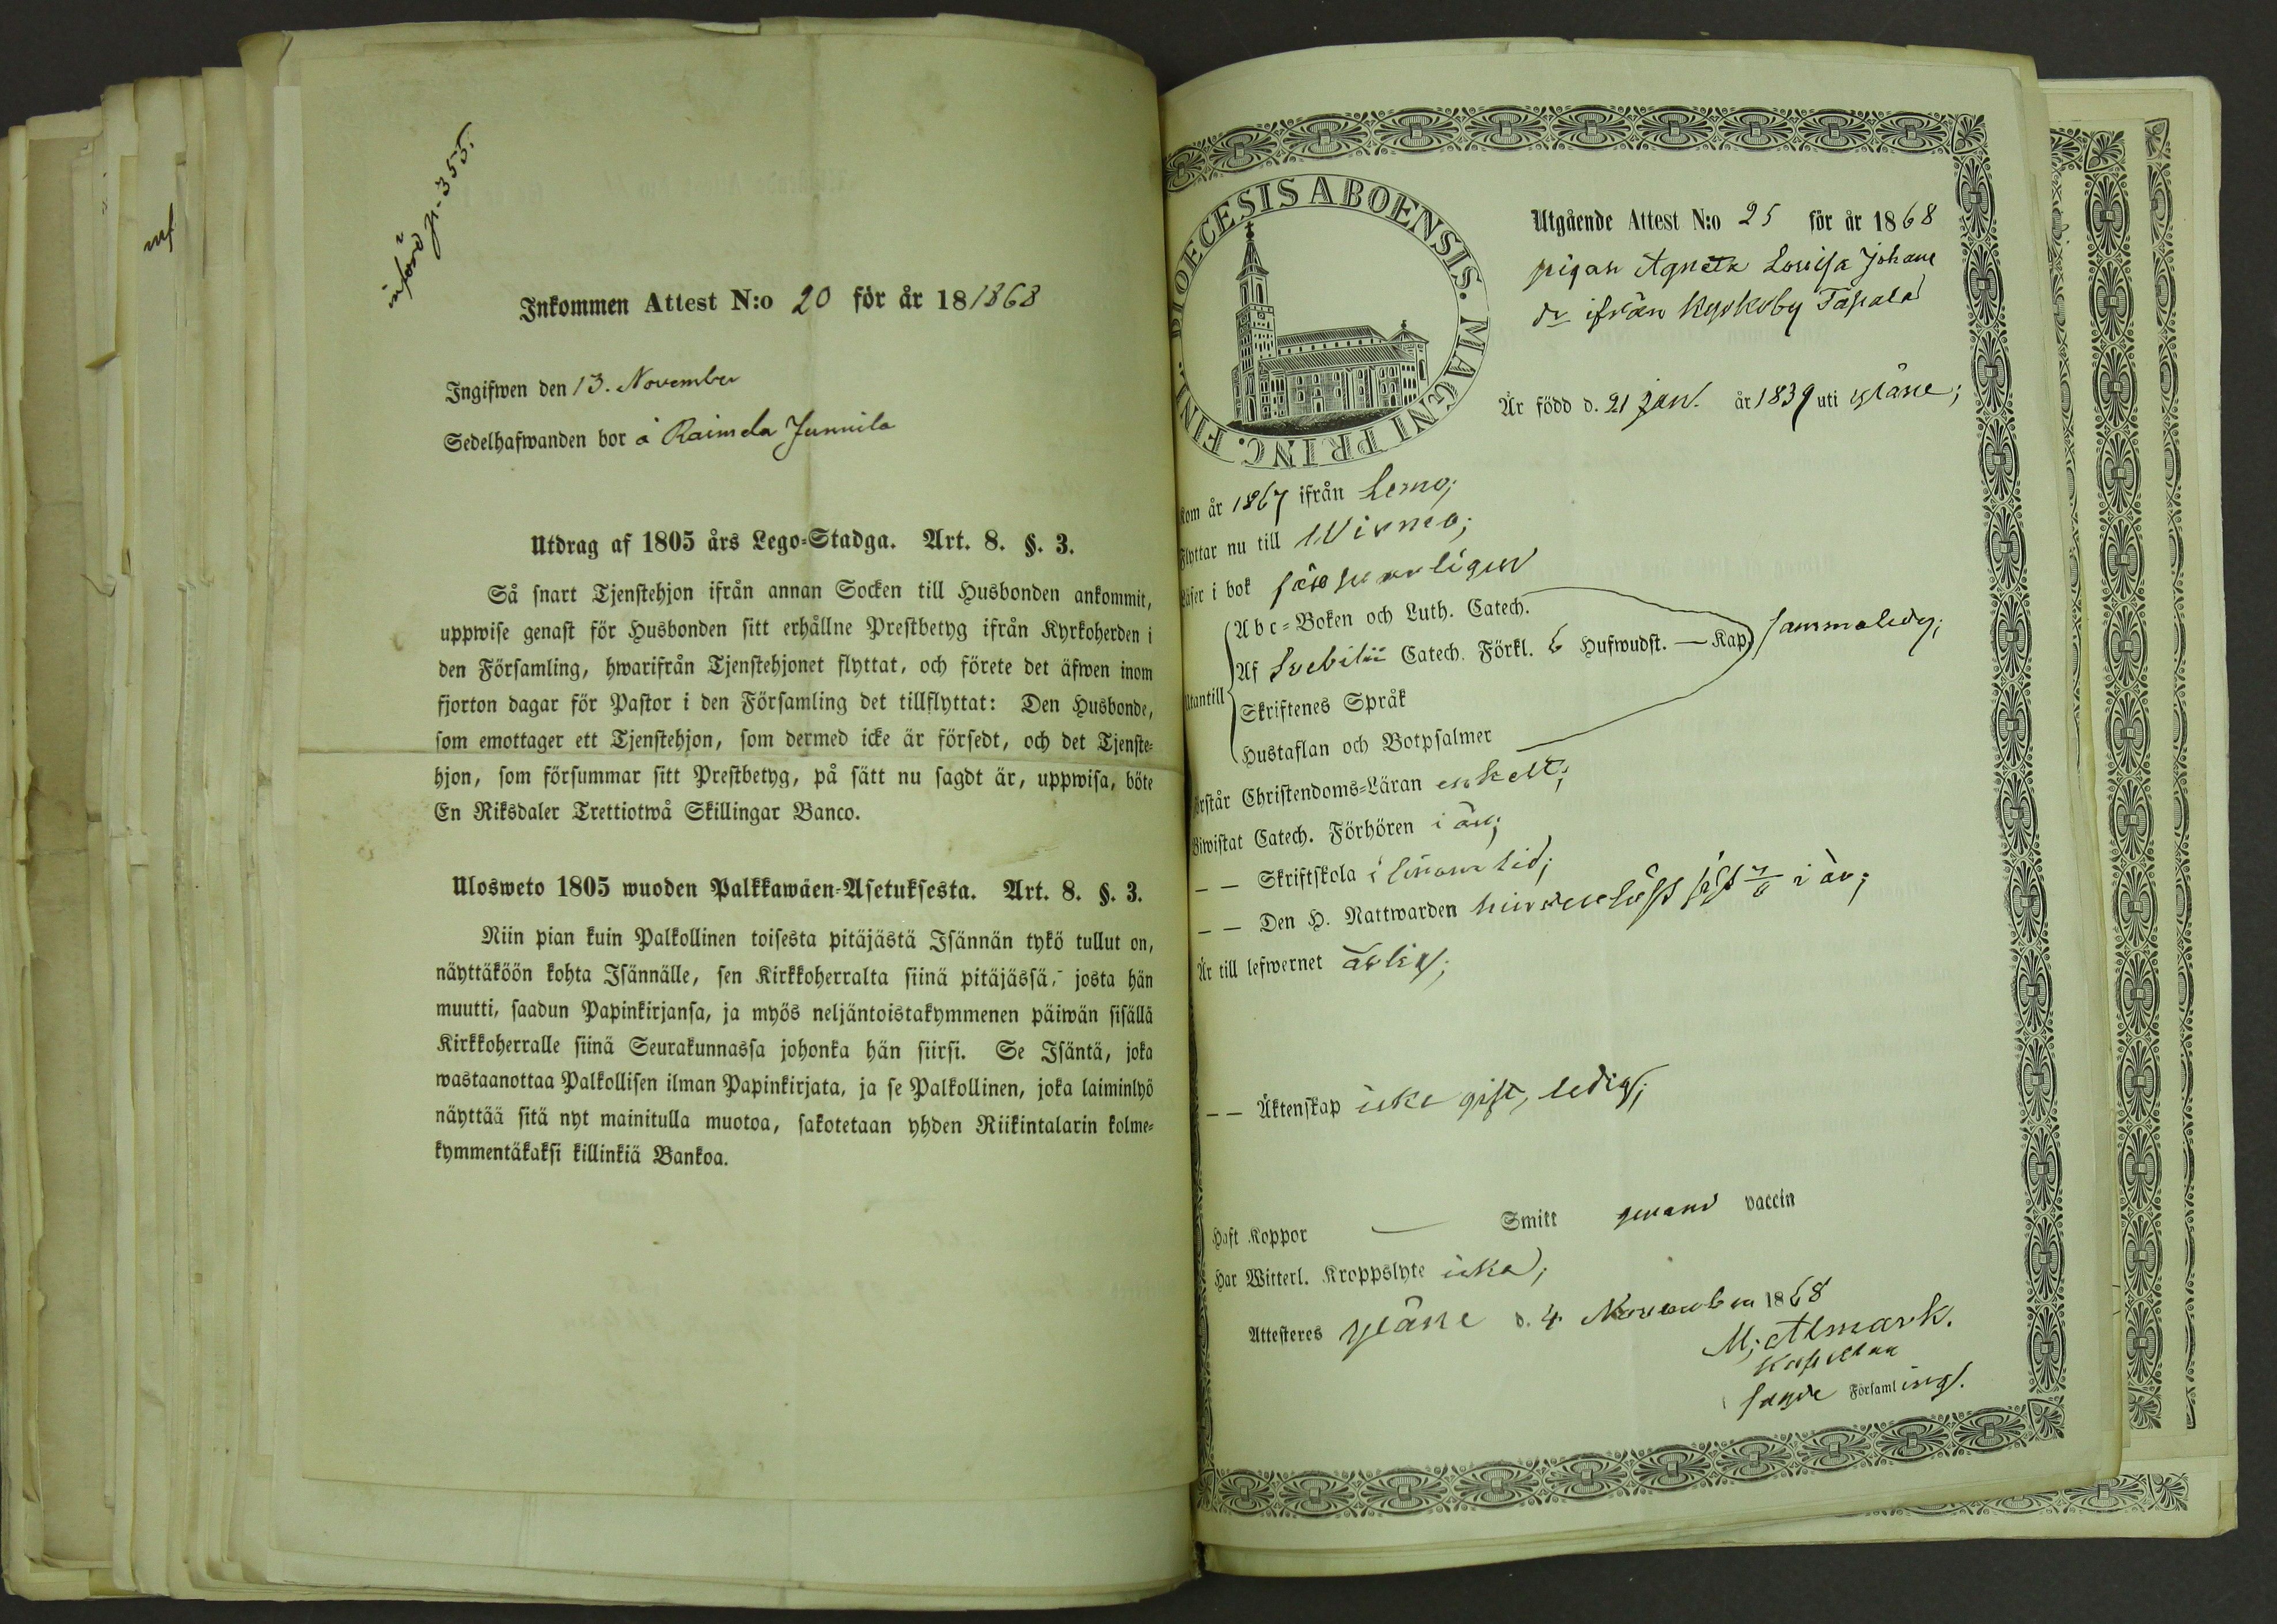 införd p. 355.
Inkommen Attest N:o 20 för år 18 1868
Ingifwen den 13. November
Sedelhafwanden bor å Raimela Junnila
Utdrag af 1805 års Lego-Stadga. Art. 8. §. 3.
Så snart Tjenstehjon ifrån annan Socken till Husbonden ankommit,
uppwise genast för Husbonden sitt erhållne Prestbetyg ifrån Kyrkoherden i
den Församling, hwarifrån Tjenstehjonet flyttat, och förete det äfwen inom
fjorton dagar för Pastor i den Församling det tillflyttat: Den Husbonde,
som emottager ett Tjenstehjon, som dermed icke är försedt, och det Tjenste-
hjon, som försummar sitt Prestbetyg, på sätt nu sagdt är, uppwisa, böte
En Riksdaler Trettiotwå Skillingar Banco.
Ulosweto 1805 wuoden Palkkawäen-Asetuksesta. Art. 8. §. 3.
Niin pian kuin Palkollinen toisesta pitäjästä Isännän tykö tullut on,
näyttäköön kohta Isännälle, sen Kirkkoherralta siinä pitäjässä, josta hän
muutti, saadun Papinkirjansa, ja myös neljäntoistakymmenen päiwän sisällä
Kirkkoherralle siinä Seurakunnassa johonka hän siirsi. Se Isäntä, joka
wastaanottaa Palkollisen ilman Papinkirjata, ja se Palkollinen, joka laiminlyö
näyttää sitä nyt mainitulla muotoa, sakotetaan yhden Riikintalarin kolme-
kymmentäkaksi killinkiä Bankoa.
nf
DIOECESIS ABOENSIS. MAGNI PRINC. FINL.
Utgående Attest N:o 25 för år 1868
pigan Agneta Lovisa Johans
dr ifrån Kyrkoby Tapala
Är född d. 21 Jan. år 1839 uti Yläne;
Kom år 1867 ifrån Lemo;
Flyttar nu till Wirmo;
Läser i bok försvarligen
Utantill
Abc-Boken och Luth. Catech.
Af Svebilii Catech. Förkl. 6 Hufwudst. — Kap. sammaledes;
Skriftenes Språk
Hustaflan och Botpsalmer
Förstår Christendoms-Läran enkelt;
Biwistat Catech. Förhören i år;
— — Skriftskola i sinom tid;
— — Den H. Nattwarden sist i år;
Är till lefwernet ärlig;
— — Äktenskap icke gift, ledig;
Haft Koppor — Smitt genom vaccin
Har Witterl. Kroppslyte icke;
Attesteres Yläne d. 4 November 1868
M; Almark.
Kapellan
Församling.